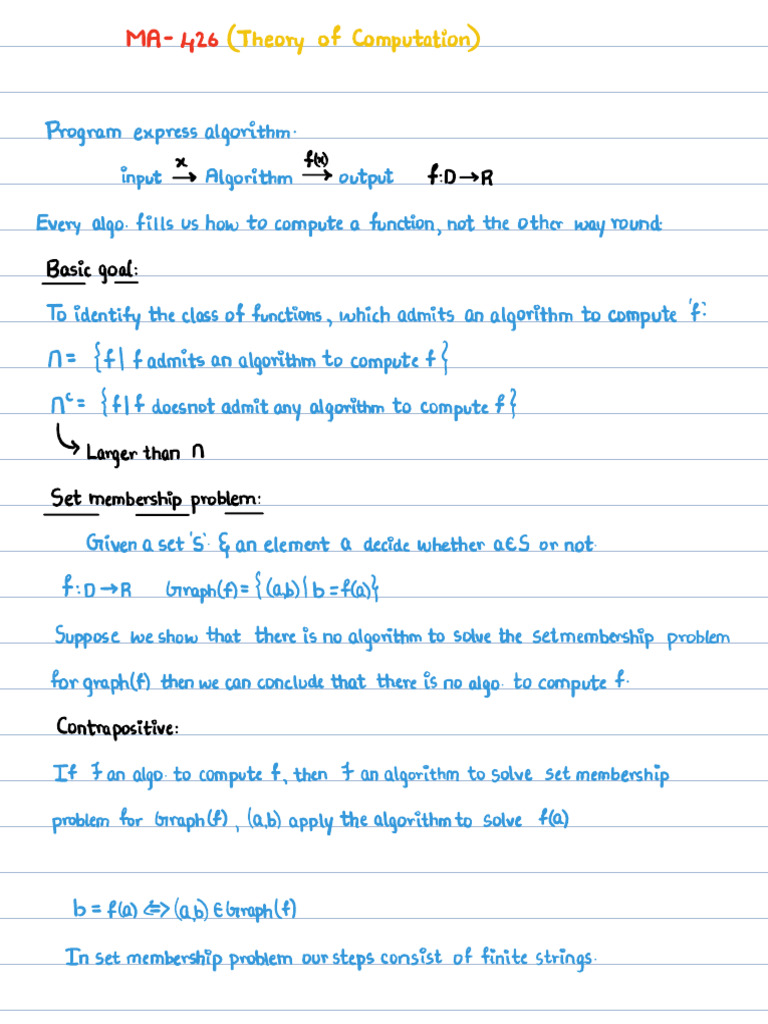 MA-426 (Theory of Computation)
Program express algorithm.
x f(x)
input → Algorithm → output f:D→R
Every algo. fills us how to compute a function, not the other way round.
Basic goal:
To identify the class of functions, which admits an algorithm to compute 'f'.
n = {f | f admits an algorithm to compute f}
nᶜ = {f | f doesnot admit any algorithm to compute f}
↳ Larger than n
Set membership problem:
Given a set 'S'. & an element a decide whether a∈S or not.
f:D→R Graph(f) = {(a,b) | b = f(a)}
Suppose we show that there is no algorithm to solve the setmembership problem
for graph(f) then we can conclude that there is no algo. to compute f.
Contrapositive:
If ∃ an algo. to compute f, then ∃ an algorithm to solve set membership
problem for Graph(f), (a,b) apply the algorithm to solve f(a)
b = f(a) ⇔ (a,b) ∈ Graph(f)
In set membership problem our steps consist of finite strings.